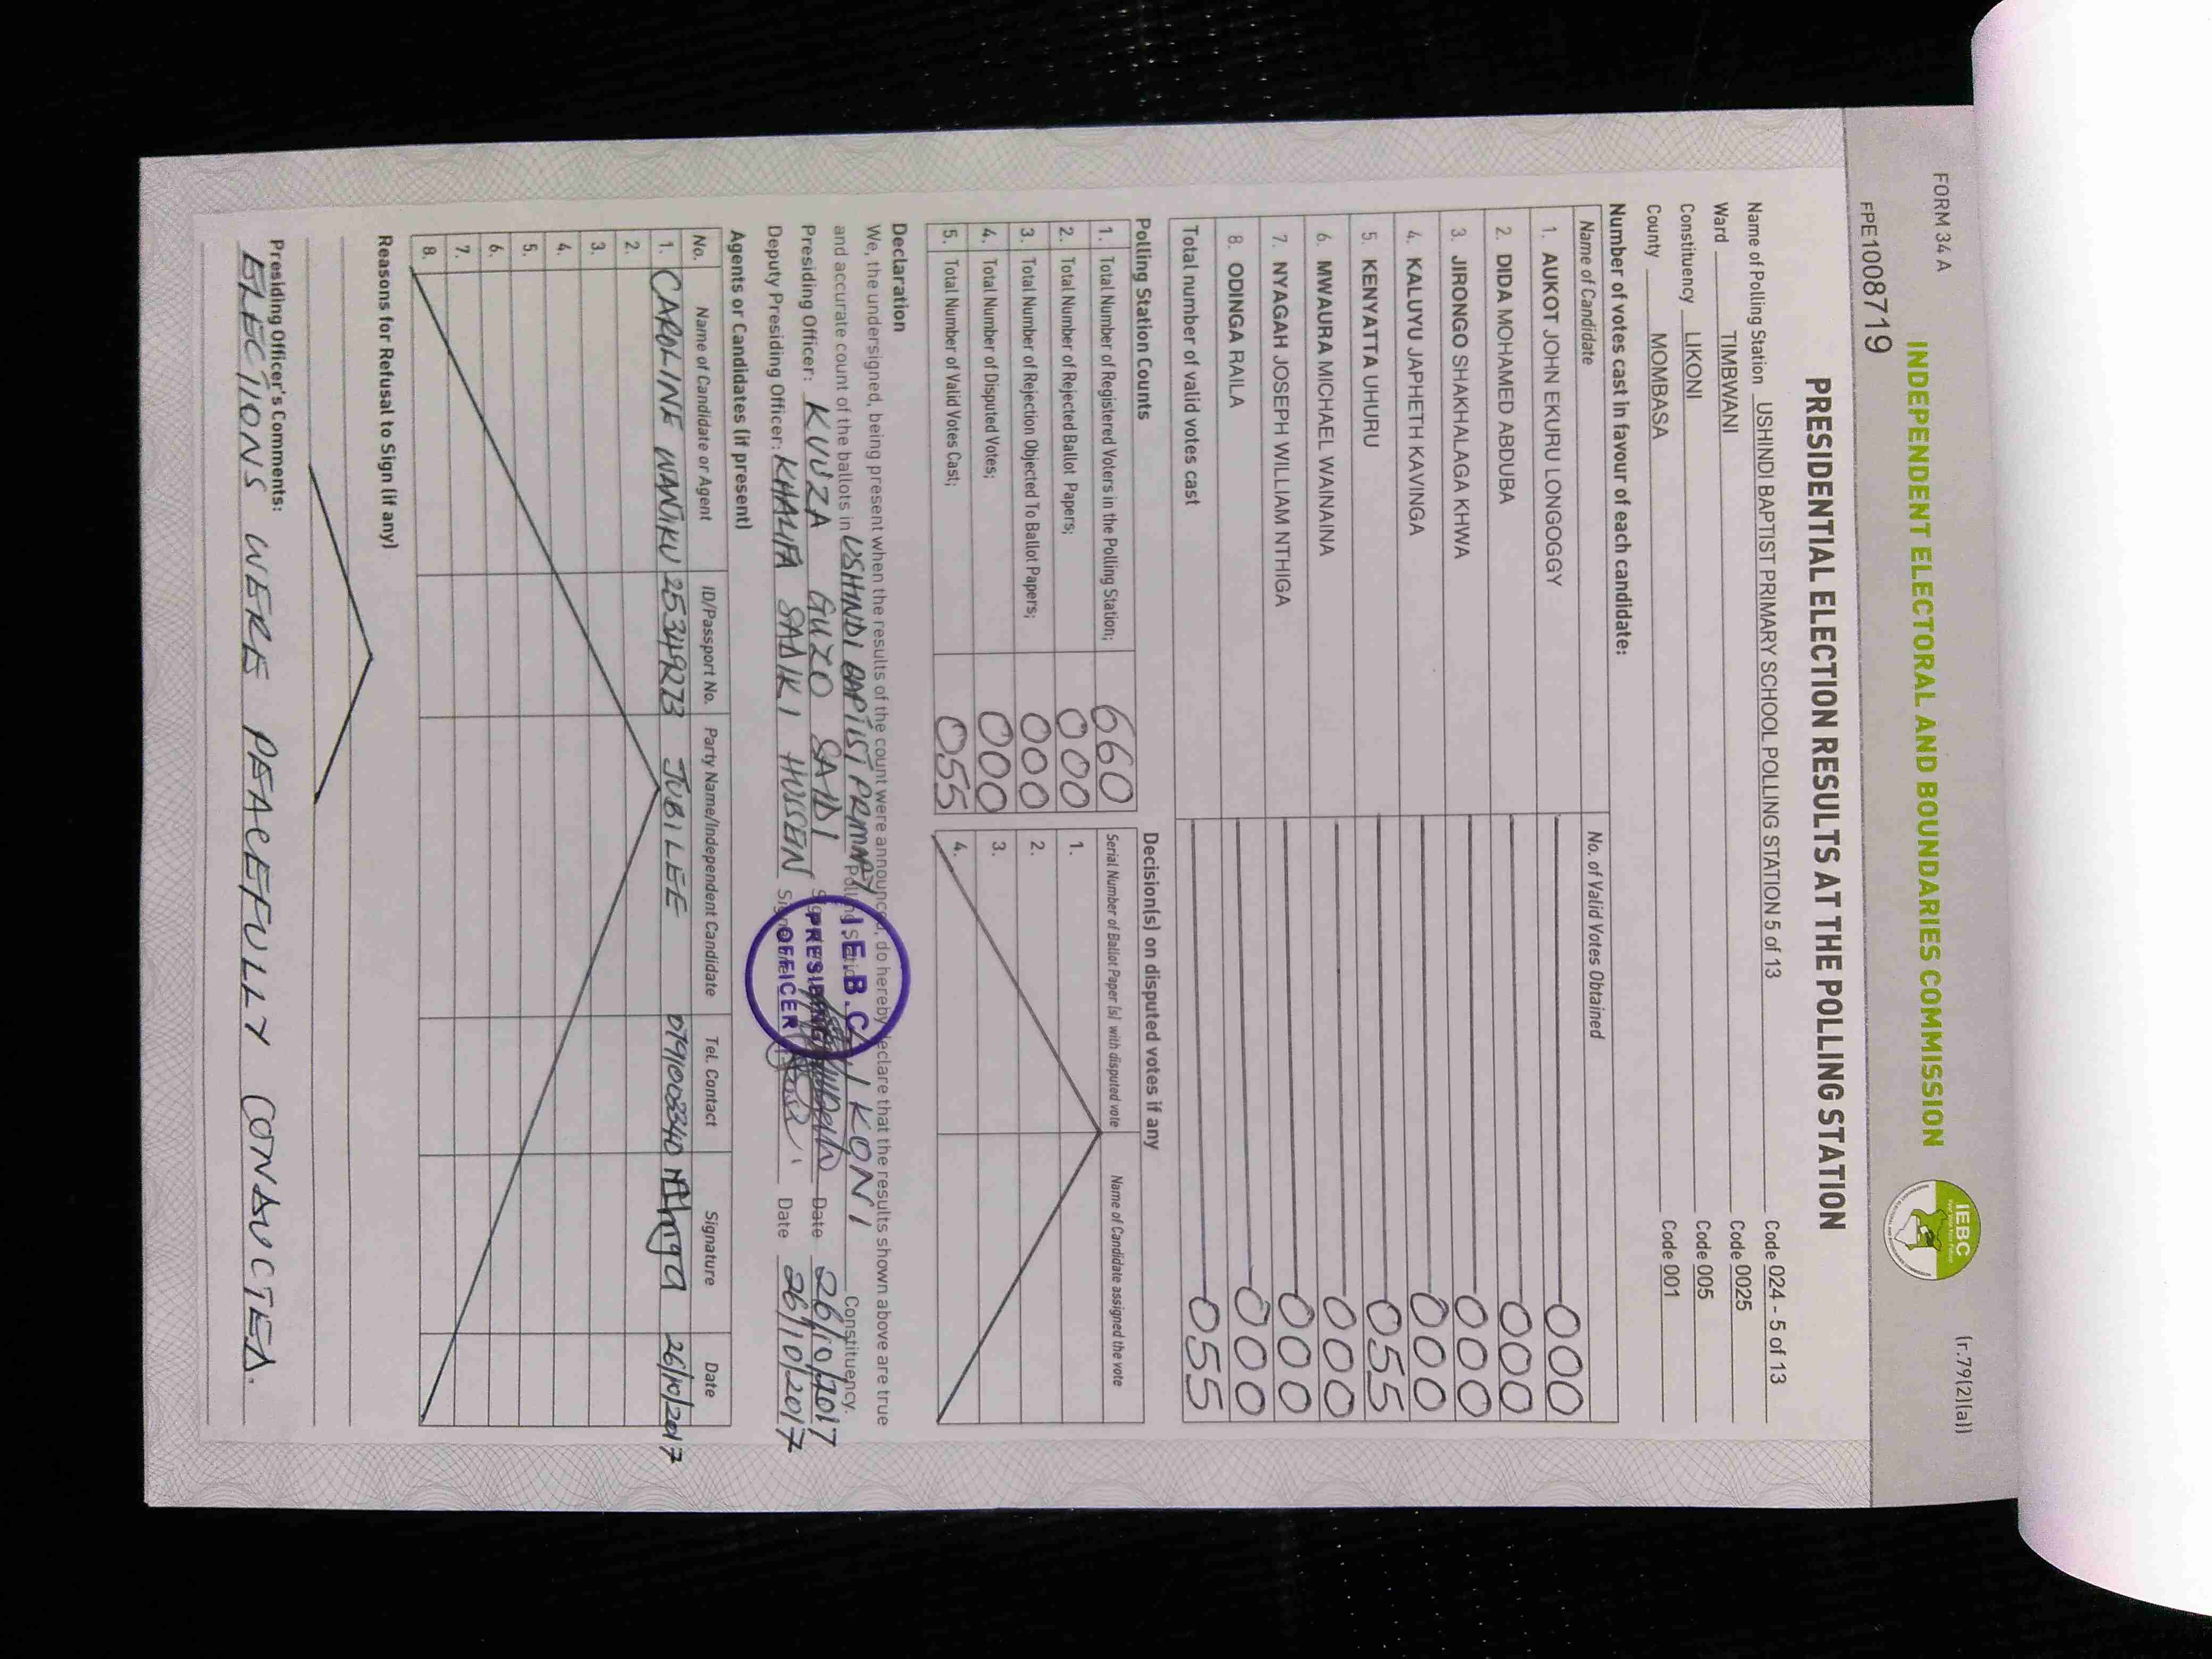 FORM 34 A
(r.79(2)(a))
INDEPENDENT ELECTORAL AND BOUNDARIES COMMISSION
IEBC
FPE1008719
PRESIDENTIAL ELECTION RESULTS AT THE POLLING STATION
Name of Polling Station USHINDI BAPTIST PRIMARY SCHOOL POLLING STATION 5 of 13 Code 024 - 5 of 13
Ward TIMBWANI Code 0025
Constituency LIKONI Code 005
County MOMBASA Code 001
Number of votes cast in favour of each candidate:
Name of Candidate No. of Valid Votes Obtained
1. AUKOT JOHN EKURU LONGOGGY 000
2. DIDA MOHAMED ABDUBA 000
3. JIRONGO SHAKHALAGA KHWA 000
4. KALUYU JAPHETH KAVINGA 000
5. KENYATTA UHURU 055
6. MWAURA MICHAEL WAINAINA 000
7. NYAGAH JOSEPH WILLIAM NTHIGA 000
8. ODINGA RAILA 000
Total number of valid votes cast 055
Polling Station Counts
1. Total Number of Registered Voters in the Polling Station; 660
2. Total Number of Rejected Ballot Papers; 000
3. Total Number of Rejection Objected To Ballot Papers; 000
4. Total Number of Disputed Votes; 000
5. Total Number of Valid Votes Cast; 055
Decision(s) on disputed votes if any
Serial Number of Ballot Paper (s) with disputed vote Name of Candidate assigned the vote
1.
2.
3.
4.
Declaration
We, the undersigned, being present when the results of the count were announced, do hereby declare that the results shown above are true
and accurate count of the ballots in USHINDI BAPTIST PRIMARY Polling Station LIKONI Constituency.
Presiding Officer: KUUZA GUZO SAIDI Date 26/10/2017
Deputy Presiding Officer: KHALIFA SADIKI HUSSEIN Date 26/10/2017
I.E.B.C.
PRESIDING
OFFICER
Agents or Candidates (if present)
No. Name of Candidate or Agent ID/Passport No. Party Name/Independent Candidate Tel. Contact Signature Date
1. CAROLINE WANJIKU 25349273 JUBILEE 0791003340 26/10/2017
2.
3.
4.
5.
6.
7.
8.
Reasons for Refusal to Sign (if any)
Presiding Officer's Comments:
ELECTIONS WERE PEACEFULLY CONDUCTED.